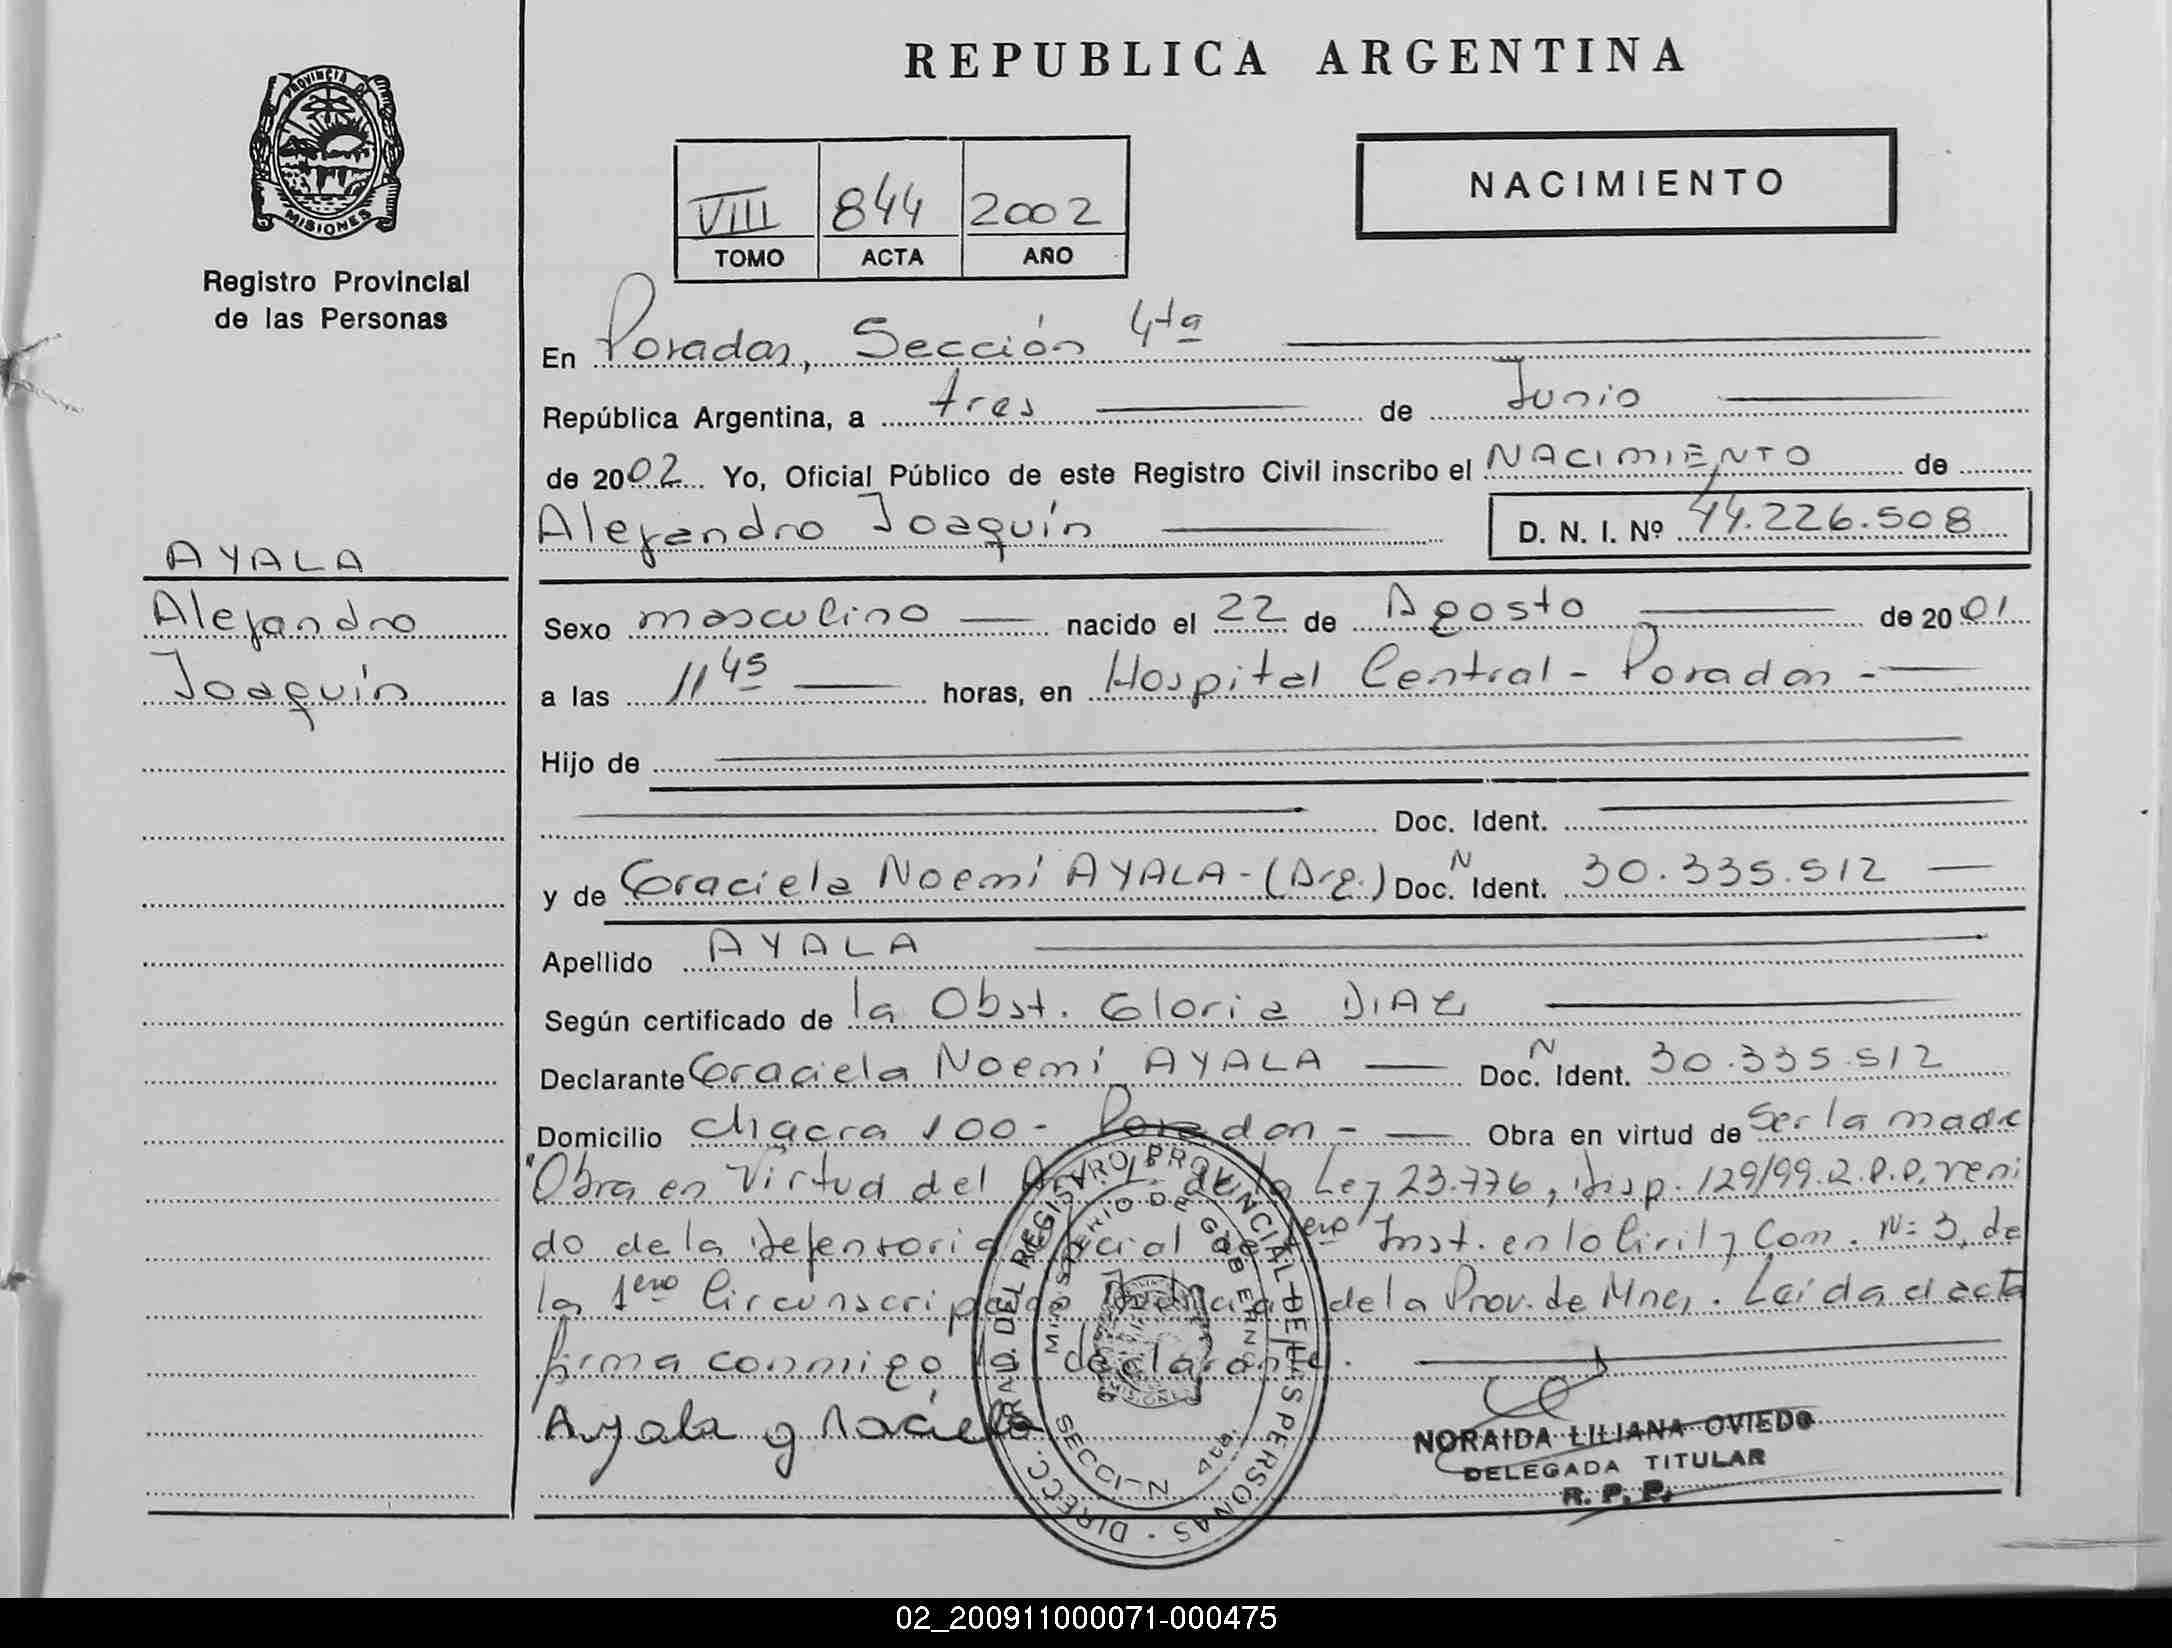 REPUBLICA ARGENTINA
PROVINCIA DE
MISIONES
Registro Provincial
de las Personas
VIII 844 2002
TOMO ACTA AÑO
NACIMIENTO
En Posadas, Sección 4ta
República Argentina, a tres de Junio
de 2002 Yo, Oficial Público de este Registro Civil inscribo el NACIMIENTO de
Alejandro Joaquín D. N. I. Nº 44.226.508
AYALA
Alejandro
Joaquín
Sexo masculino nacido el 22 de Agosto de 2001
a las 11 45 horas, en Hospital Central - Posadas -
Hijo de
Doc. Ident.
y de Graciela Noemí AYALA - (Arg.) Doc. N Ident. 30.335.512
Apellido AYALA
Según certificado de la Obst. Gloria DIAZ
Declarante Graciela Noemí AYALA Doc. N Ident. 30.335.512
Domicilio Chacra 100 - Posadas - Obra en virtud de Ser la madre
"Obra en Virtud del Ley 23.776, Disp. 129/99.R.P.P. reni
do de la Defensoria Oficial de 1era Inst. en lo Civil y Com. N= 3, de
la 1era Circunscripción Judicial de la Prov. de Mnes. Leída el acta
firma conmigo la declarante.
Ayala graciela
DIRECC. GRAL. DEL REGISTRO PROVINCIAL DE LAS PERSONAS
MINISTERIO DE GOBIERNO
SECCI_N 4ta.
NORAIDA LILIANA OVIEDO
DELEGADA TITULAR
R. P. P.
02_200911000071-000475